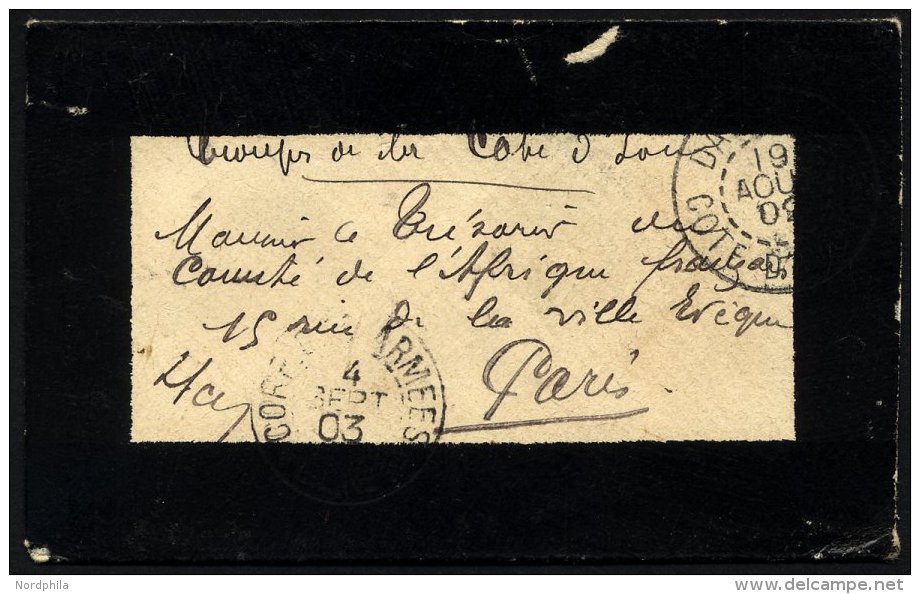 Troupes de la Côte d'Ivoire
Monsieur le Trésorier du
Comité de l'Afrique française
15 rue de la Ville Evêque
Paris
DA
19
AOU
COTE D
CORR ARMEES
4
SEPT
03
Nordphila
delcampe.net